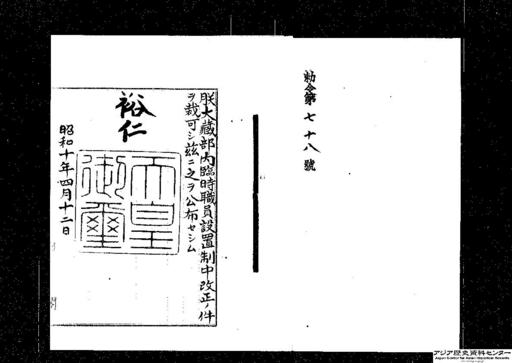 勅令第七十八號
朕大藏部內臨時職員設置制中改正ノ件
ヲ裁可シ茲ニ之ヲ公布セシム
裕仁
天皇御璽
昭和十年四月十二日
アジア歴史資料センター
Japan Center for Asian Historical Records